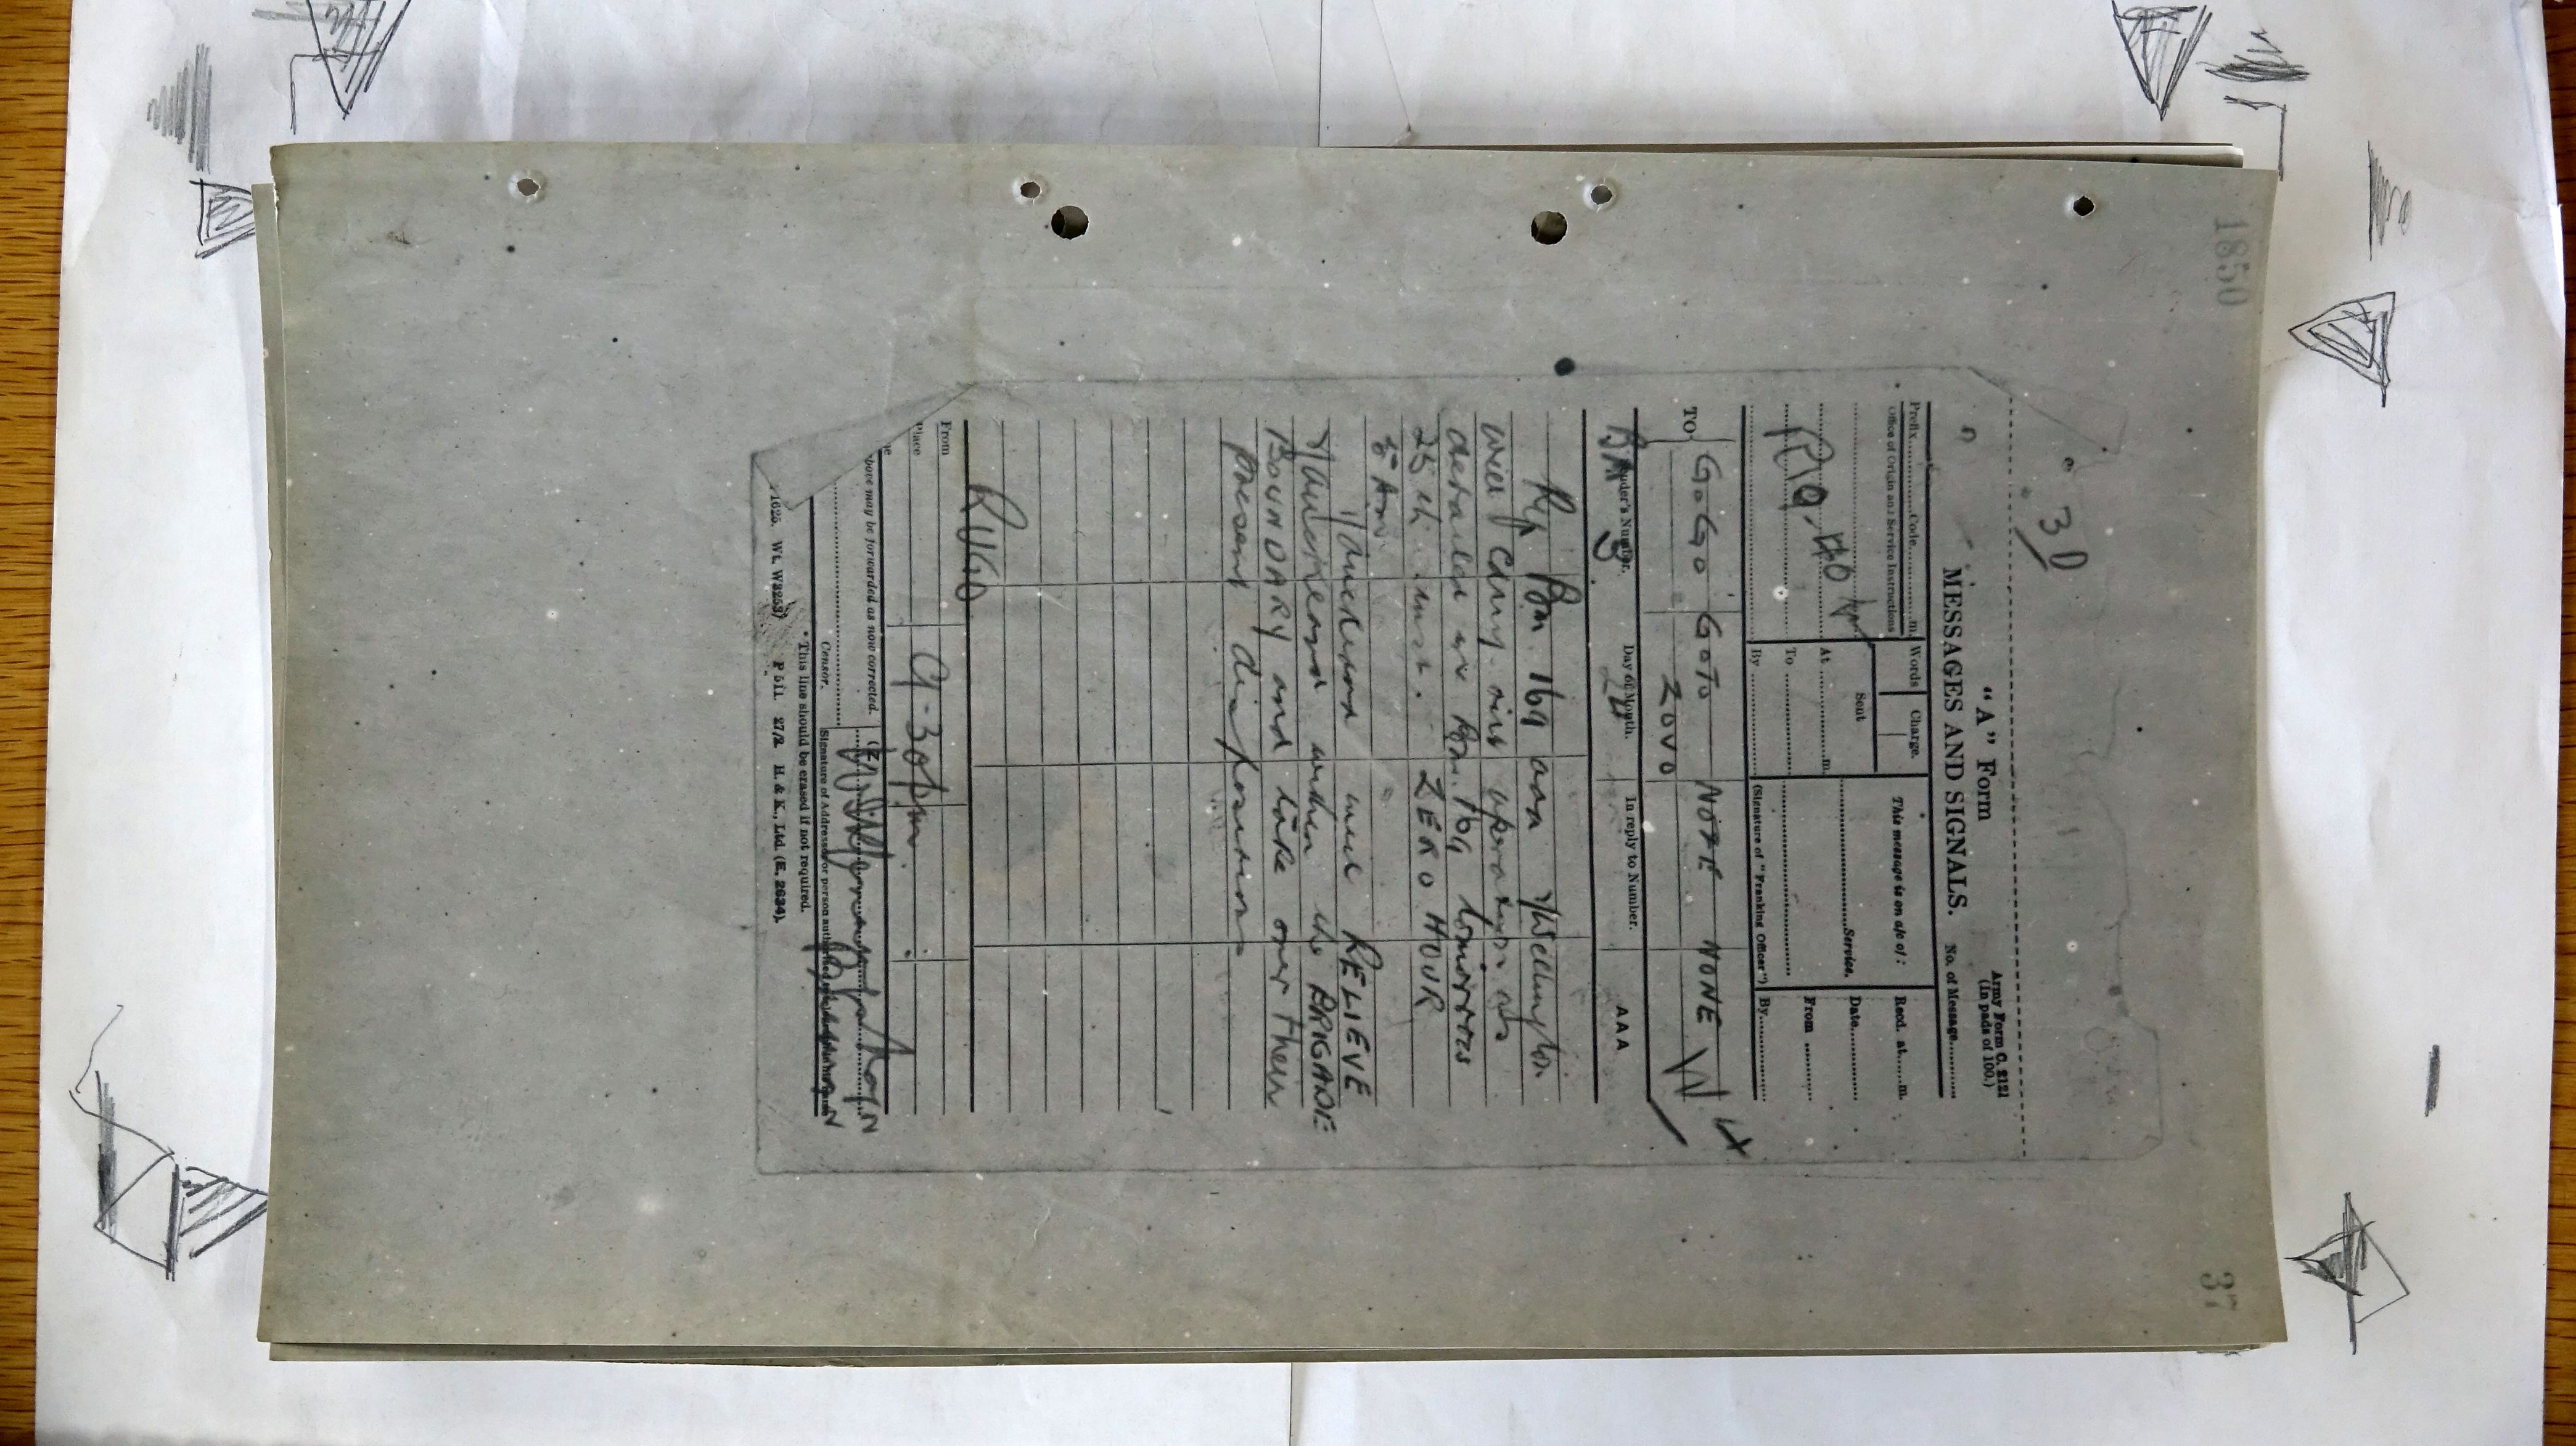 1850
37
30
"A" Form
Army Form C. 2121
(In pads of 100.)
MESSAGES AND SIGNALS.
No. of Message
Prefix Code m.
Words
Charge.
This message is on a/c of:
Recd. at m.
Office of Origin and Service Instructions
Sent
Date
At m.
Service.
From
To
By
(Signature of "Franking Officer")
By
TO
GOGO GOTO NOTE NONE
ZOVO
Sender's Number.
Day of Month.
In reply to Number.
AAA
3
24
Ref Bm. 169 aaa Wellington
will carry out operation as
detailed in Bm. 169 tomorrow
25th inst. ZERO HOUR
5 Am
Auckland will RELIEVE
Auckland within the BRIGADE
BOUNDARY and take over their
present dispositions
RUGO
From
Place
9-30pm.
bove may be forwarded as now corrected.
(Z)
Censor.
Signature of Addressor or person authorised
* This line should be erased if not required.
1625. Wt. W3253/ P 511. 27/2 H. & K., Ltd. (E. 2634).